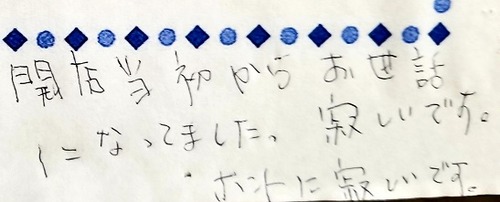 開店当初からお世話
になってました、寂しいです。
ホントに寂しいです。